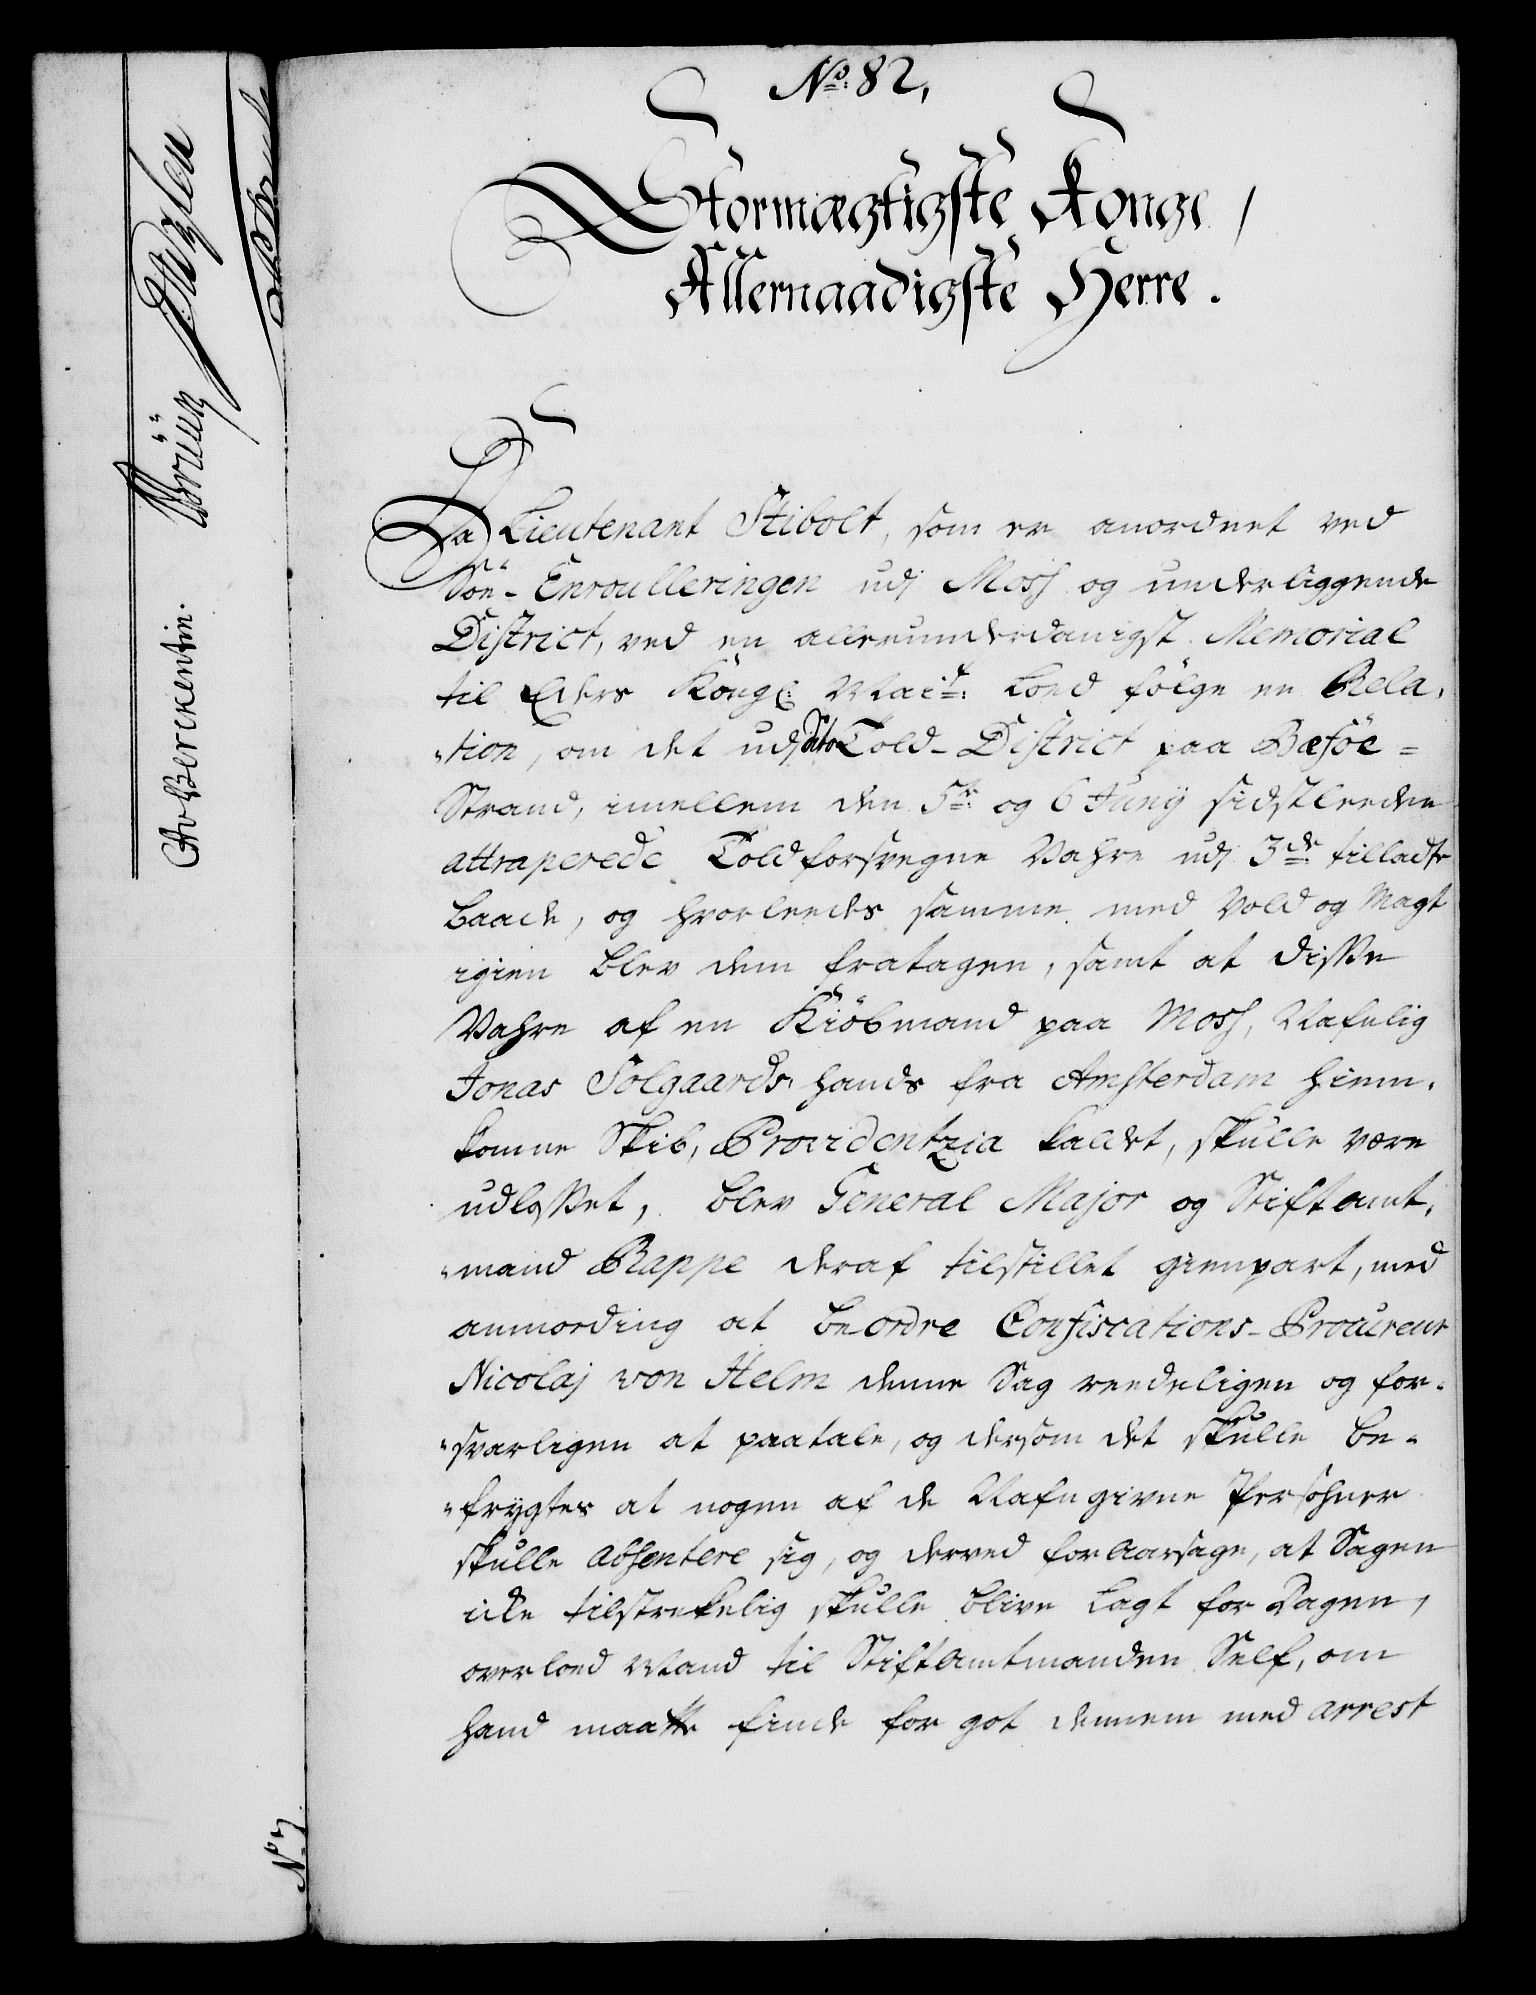 No. 82,
Stormægtigste Konge /
Allernaadigste Herre.
Da Lieutenant Stibolt, som er anordnet ved
Söe-Enroulleringen udj Moss og underliggende
District, ved en allerunderdanigst Memorial
til Eders Kongl: Mait: loed fölge en Rela-
-tion, om det udj Told-District paa Bæföe-
Strand, imellem den 5te og 6 Junij sidstleeden
attraperede Toldforsvegne Vahre udj 3de tilladte
Baade, og hvorleedes samme med Vold og Magt
igien blev dem fratagen, samt at disse
Vahre af en Kiöbmand paa Moss, Nafnlig
Jonas Solgaards hands fra Amsterdam hiem-
komne Skib, Providentzia kaldet, skulle være
udlosset, blev General Major og Stiftamt-
-mand Rappe deraf tilstillet gienpart, med
anmording at beordre Confiscations-Procureur
Nicolaj von Helm denne Sag reedeligen og for-
-svarligen at paatale, og dersom det skulle be-
-frygtes at nogen af de Nafngivne Persohner
skulle absentere sig, og derved foraarsage, at Sagen
icke tilstrekelig skulle blive lagt for Dagen,
overloed Mand til Stiftamtmanden Self, om
hand maatte finde for got dennem med arrest
Berckentin.
No 7.